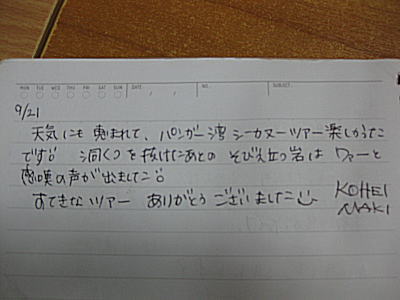 MON TUE WED THU FRI SAT SUN DATE NO. SUBJECT.
9/21
天気にも恵まれて、パンガー湾シーカヌーツアー楽しかった
です。洞くつを抜けたあとのそびえ立つ岩はワァーと
感嘆の声が出ました。
すてきなツアー ありがとうございました
KOHEI
MAKI